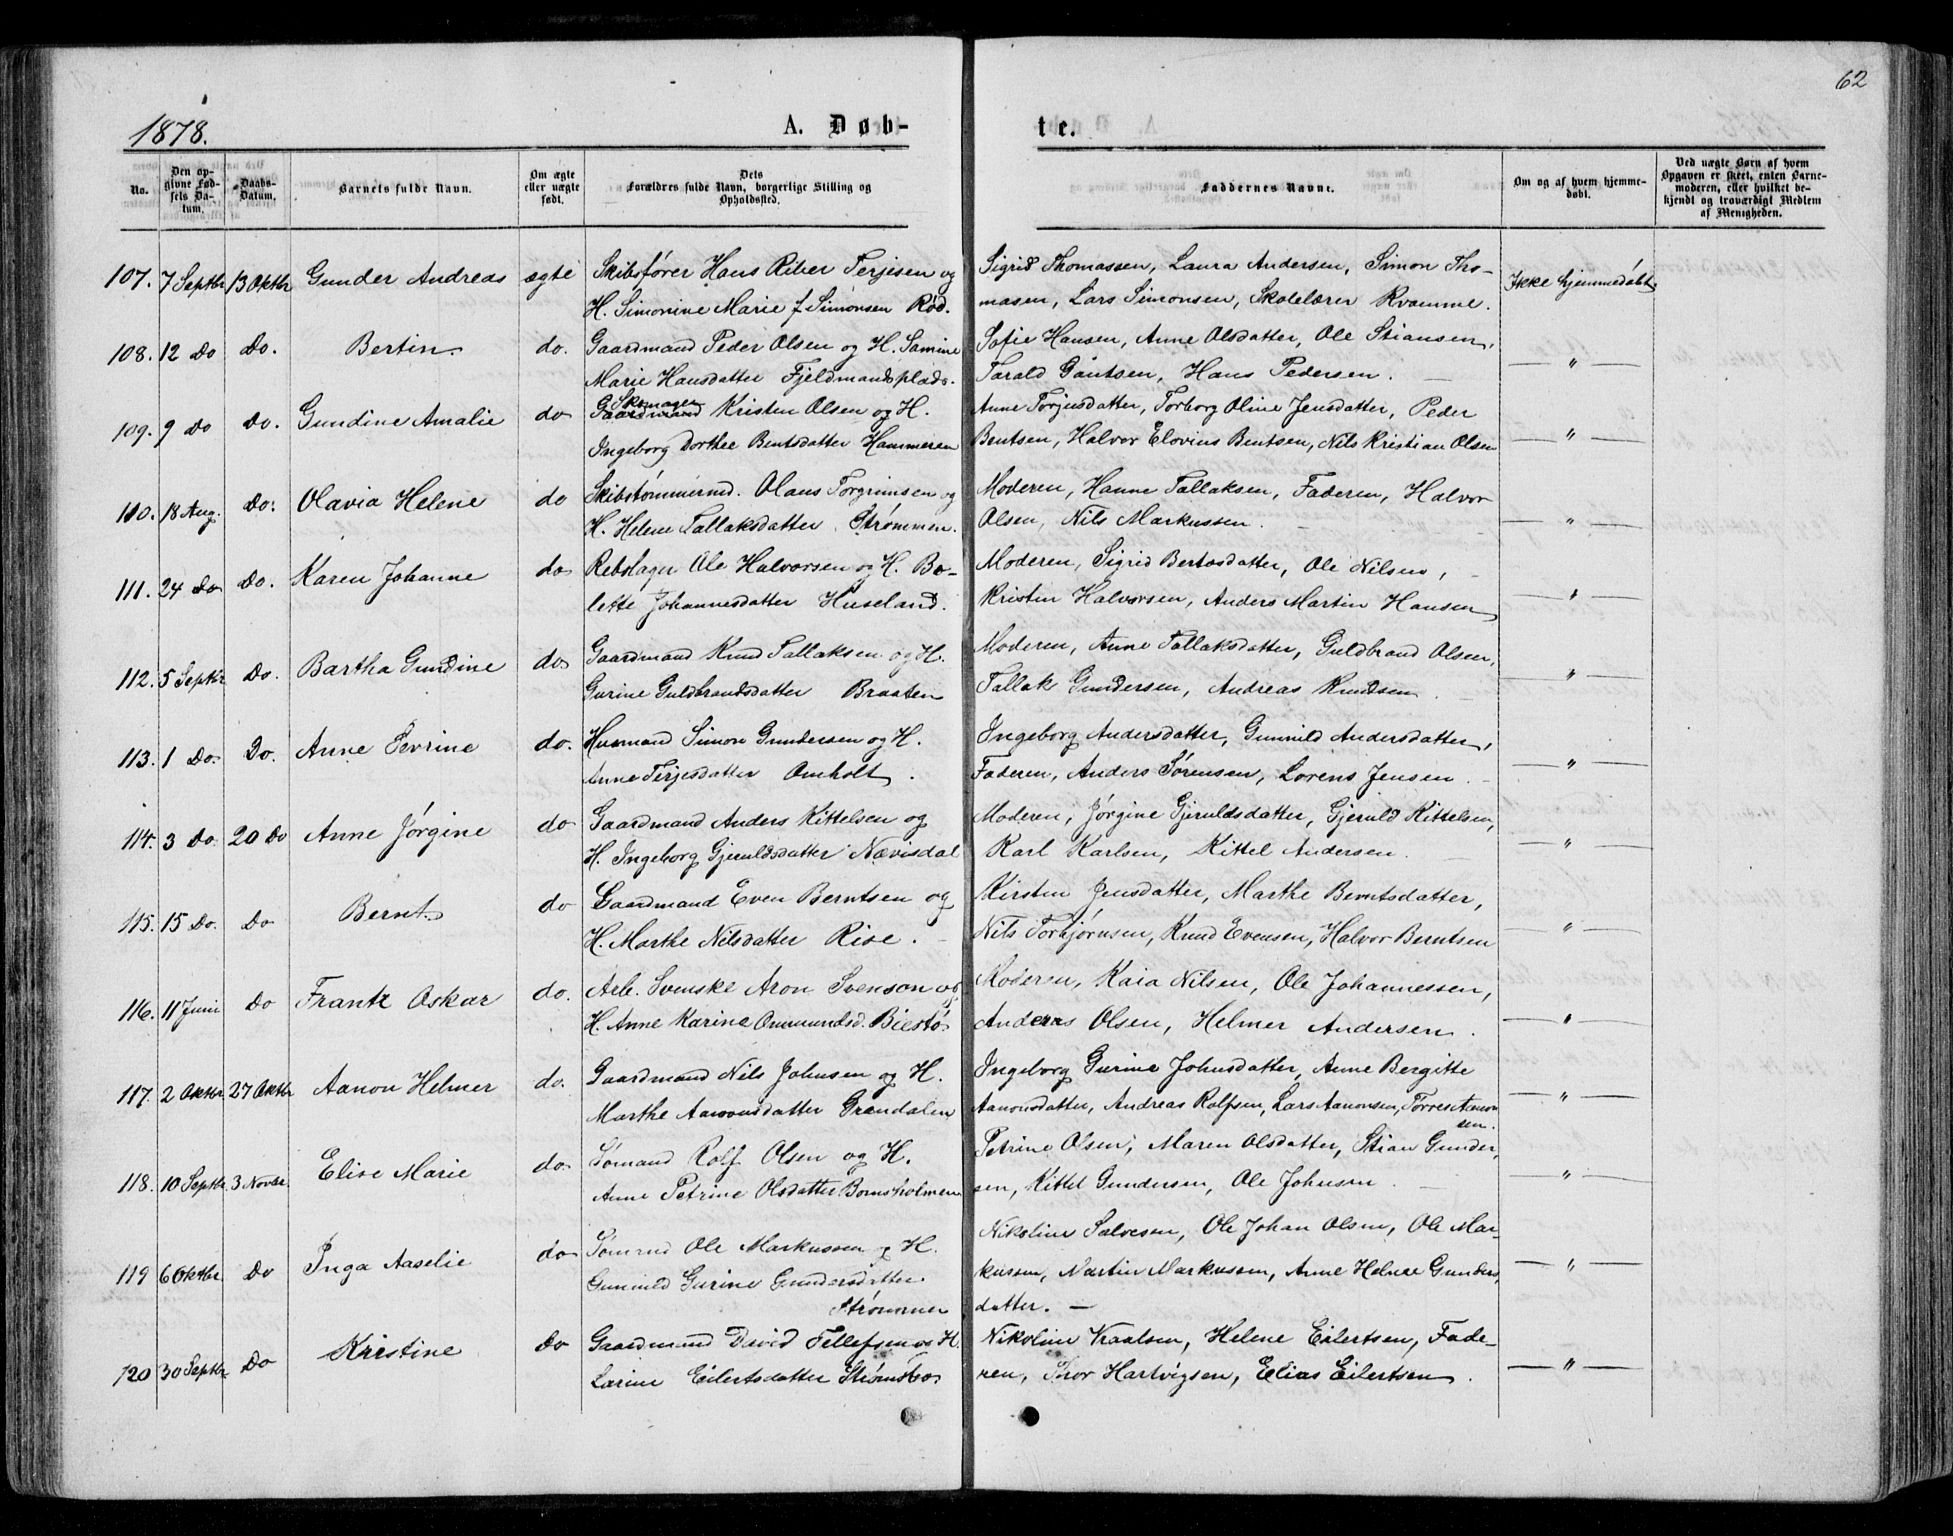 62
1878.
A. Døb-
te.
No.
Den op-
givne Fød-
sels Da-
tum.
Daabs-
Datum.
Barnets fulde Navn.
Om ægte
eller uægte
født.
Dets
Forældres fulde Navn, borgerlige Stilling og
Opholdssted.
Faddernes Navne.
Om og af hvem hjemme-
døbt.
Ved uægte Børn af hvem
Opgaven er skeet, enten Barne-
moderen, eller hvilket be-
kjendt og troværdigt Medlem
af Menigheden.
107. 7 Septbr 13 Oktbr Gunder Andreas ægte Skibsfører Hans Riber Terjesen og Sigrid Thomassen, Laura Andersen, Simon Tho- Ikke hjemmedøbt
H. Simonine Marie f. Simonsen Rød. masen, Lars Simonsen, Skolelærer Kvamme.
108. 12 Do Do. Bertin. do. Gaardmand Peder Olsen og H. Samine Sofie Hansen, Anne Olsdatter, Ole Stiansen,
Marie Hansdatter Fjeldmandsplads. Tarald Gautsen, Hans Pedersen. — " —
Skomager
109. 9 Do Do. Gundine Amalie do Gaardmand Kristen Olsen og H. Anne Torjusdatter, Torborg Oline Jensdatter, Peder
Ingeborg Dorthee Bentsdatter Hammeren Bentsen, Halvor Elovius Bentsen, Nils Kristian Olsen — " —
110. 18 Aug. Do. Olavia Helene do Skibstømmermd. Olaus Torgrimsen og Moderen, Hanne Tallaksen, Faderen, Halvor
H. Helene Tallaksdatter Strømmen. Olsen, Nils Markussen. — " —
111. 24 Do Do. Karen Johanne do Rebslager Ole Halvorsen og H. Bo- Moderen, Sigrid Bertosdatter, Ole Nilsen,
lette Johannesdatter Huseland. Kristen Halvorsen, Anders Martin Hansen — " —
112. 5 Septbr Do. Bartha Gundine do Gaardmand Knud Tallaksen og H. Moderen, Anne Tallaksdatter, Guldbrand Olsen,
Gurine Guldbrandsdatter Braaten Tallak Gundersen, Andreas Knudsen — " —
113. 1 Do. Do. Anne Sevrine do. Husmand Simon Gundersen og H. Ingeborg Andersdatter, Gunnild Andersdatter,
Anne Terjesdatter Omholt. Faderen, Anders Sørensen, Lorens Jensen. — " —
114. 3 Do. 20 Do Anne Jørgine do Gaardmand Anders Kittelsen og Moderen, Jørgine Gjeruldsdatter, Gjeruld Kittelsen,
H. Ingeborg Gjeruldsdatter Nævisdal Karl Karlsen, Kittel Andersen. — " —
115. 15 Do. Do Bernt. do Gaardmand Even Berntsen og Kirsten Jensdatter, Marthe Berntsdatter,
H. Marthe Nilsdatter Rise. Nils Torbjørnsen, Knud Evensen, Halvor Berntsen — " —
116. 11 Juni Do Frantz Oskar do. Arb. Svenske Aron Svenson og Moderen, Kaia Nilsen, Ole Johannessen,
H. Anne Karine Ommundsd. Biestø Anderas Olsen, Helmer Andersen. — " —
117. 2 Oktbr 27 Oktbr Aanon Helmer do. Gaardmand Nils Johnsen og H. Ingeborg Gurine Johnsdatter, Anne Bergitte
Marthe Aanonsdatter Grændalen Aanonsdatter, Andreas Rolfsen, Lars Aanonsen, Torres Aanon
sen. — " —
118. 10 Septbr. 3 Novbr Elise Marie do Sømand Rolf Olsen og H. Petrine Olsen, Maren Olsdatter, Stian Gunder,
Anne Petrine Olsdatter Bomsholmen sen, Kittel Gundersen, Ole Johnsen. — " —
119 6 Oktbr. Do Inga Aaselie do Sømnd Ole Markussen og H. Nikoline Salvesen, Ole Johan Olsen, Ole Mar-
Gunnild Gurine Gundersdatter kussen, Martin Markussen, Anne Helene Gunders — " —
Strømmen datter. —
120 30 Septbr Do Kristine do Gaardmand David Tellefsen og H. Nikoline Knalsen, Helene Eilertsen, Fade-
Larine Eilertsdatter Strømsbo ren, Thor Hartvigsen, Elias Eilertsen. — " —